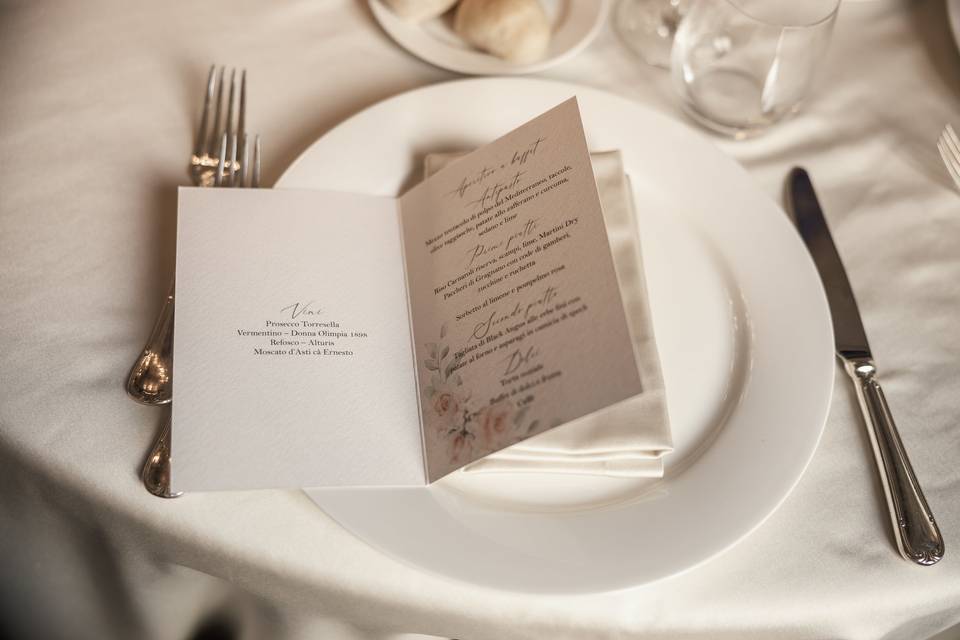 Vini
Prosecco Torresella
Vermentino – Donna Olimpia 1898
Refosco – Alturis
Moscato d'Asti cà Ernesto
Aperitivo a buffet
Antipasto
Mezzo tentacolo di polpo del Mediterraneo, taccole,
olive taggiasche, patate allo zafferano e curcuma,
sedano e lime
Primi piatti
Riso Carnaroli riserva, scampi, lime, Martini Dry
Paccheri di Gragnano con code di gamberi,
zucchine e ruchetta
Sorbetto al limone e pompelmo rosa
Secondo piatto
Tagliata di Black Angus alle erbe fini con
patate al forno e asparagi in camicia di speck
Dolci
Torta nuziale
Buffet di dolci e frutta
Caffè